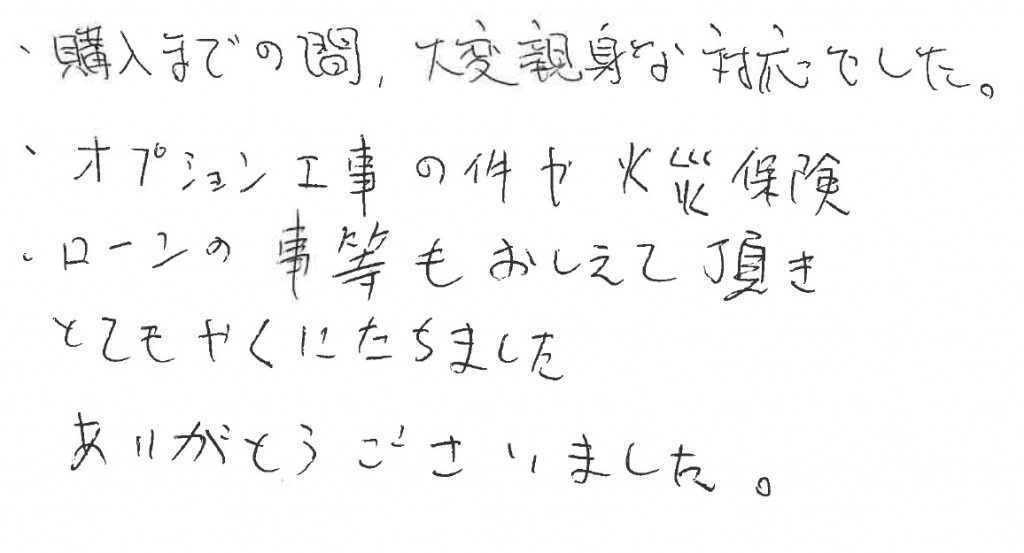 ・購入までの間、大変親身な対応でした。
・オプション工事の件や火災保険
・ローンの事等もおしえて頂き
とてもやくにたちました
ありがとうございました。